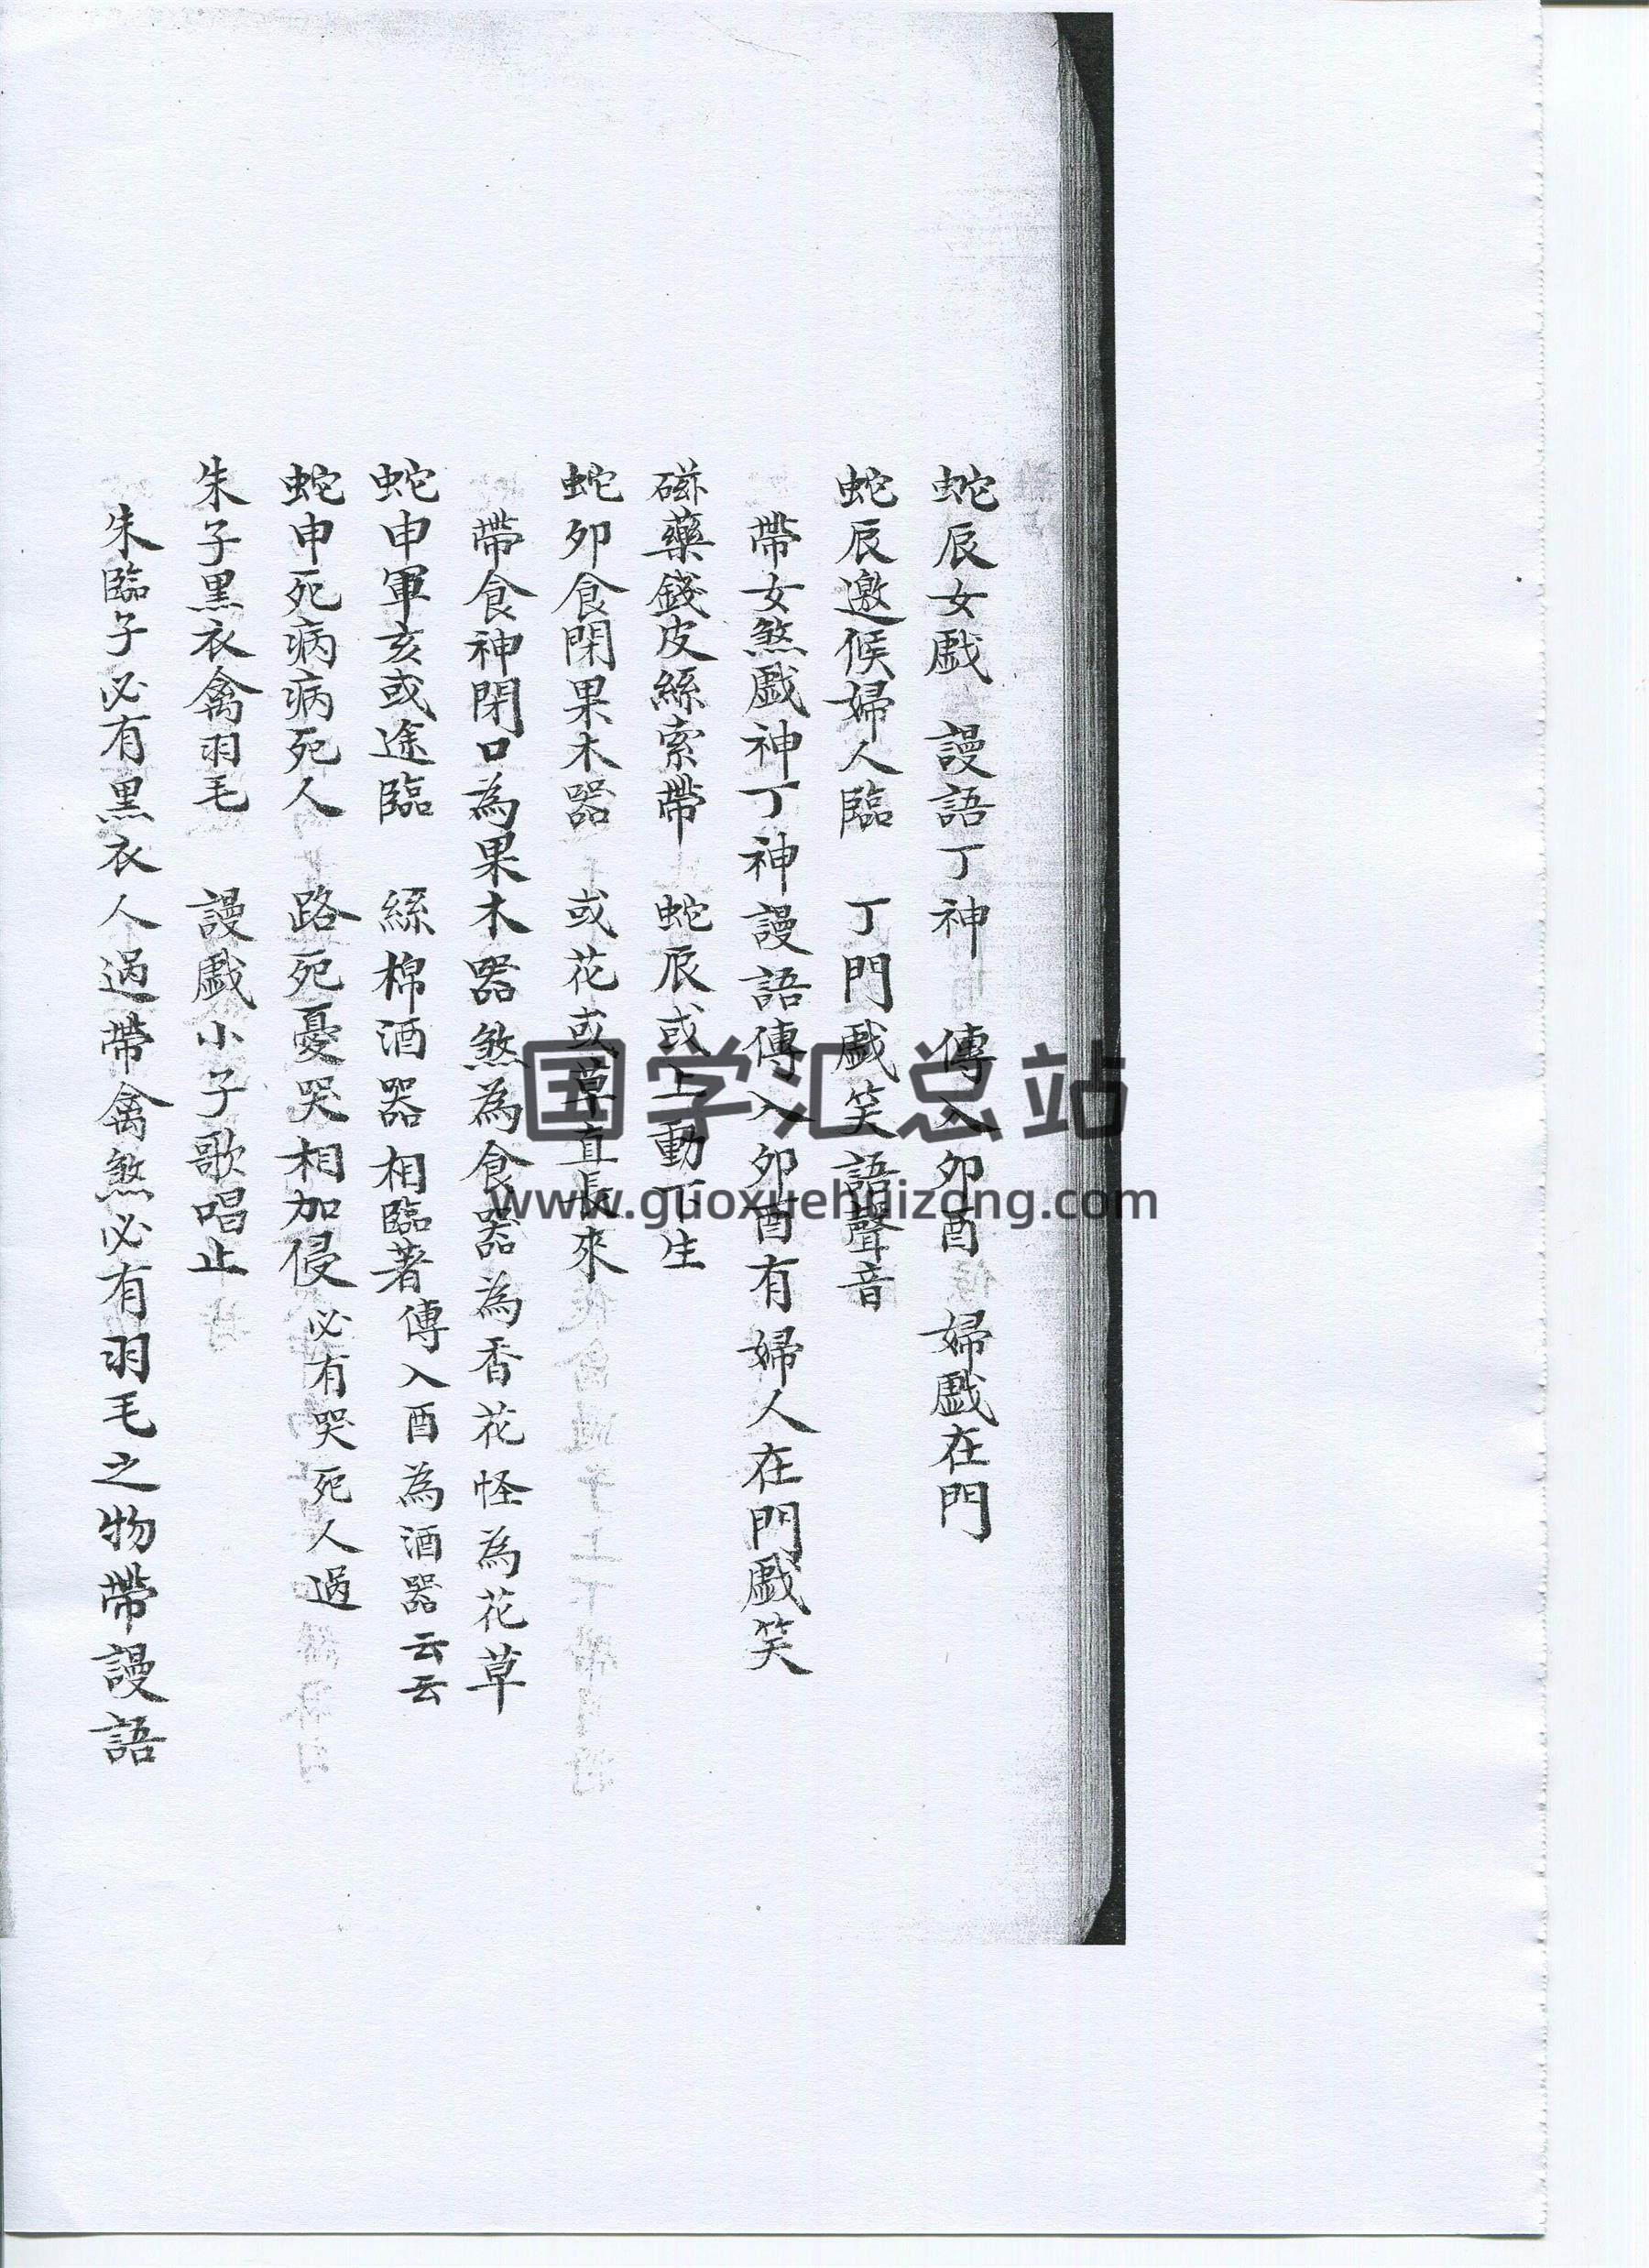 蛇辰女戲 謾語丁神 傳入卯酉 婦戲在門
蛇辰邀候婦人臨 丁門戲笑語聲音
帶女煞戲神丁神謾語傳入卯酉有婦人在門戲笑
磁藥錢皮絲索帶 蛇辰或上動下生
蛇卯食閉果木器 或花或草直長來
帶食神閉口為果木器煞為食器為香花怪為花草
蛇申軍亥或途臨 絲棉酒器相臨著傳入酉為酒器云云
蛇申死病病死人 路死憂哭相加侵必有哭死人過
朱子黑衣禽羽毛 謾戲小子歌唱止
朱臨子必有黑衣人過帶禽煞必有羽毛之物帶謾語
国学汇总站
www.guoxuehuizong.com